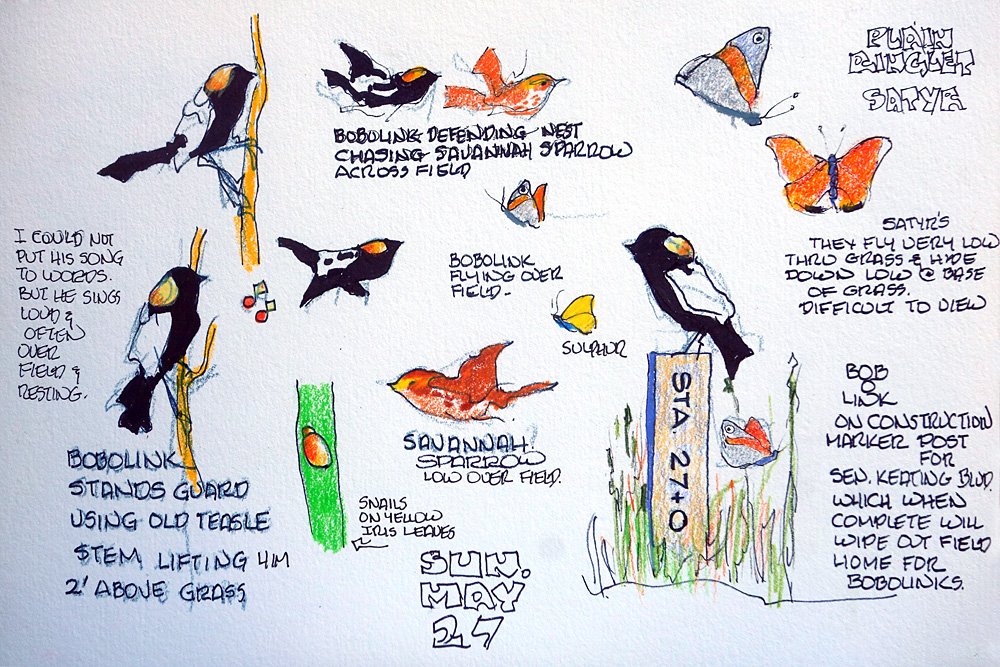 PLAIN
RINGLET
SATYR
BOBOLINK DEFENDING NEST
CHASING SAVANNAH SPARROW
ACROSS FIELD
I COULD NOT
PUT HIS SONG
TO WORDS.
BUT HE SINGS
LOUD &
OFTEN
OVER
FIELD &
RESTING.
BOBOLINK
FLYING OVER
FIELD-
SULPHUR
SATYR'S
THEY FLY VERY LOW
THRU GRASS & HIDE
DOWN LOW @ BASE
OF GRASS.
DIFFICULT TO VIEW
STA 27+0
BOB
O
LINK
ON CONSTRUCTION
MARKER POST
FOR
SEN. KEATING BLVD.
WHICH WHEN
COMPLETE WILL
WIPE OUT FIELD
HOME FOR
BOBOLINKS.
SAVANNAH
SPARROW
LOW OVER FIELD.
BOBOLINK
STANDS GUARD
USING OLD TEASLE
STEM LIFTING HIM
2' ABOVE GRASS
SNAILS
ON YELLOW
IRIS LEAVES
SUN.
MAY
27